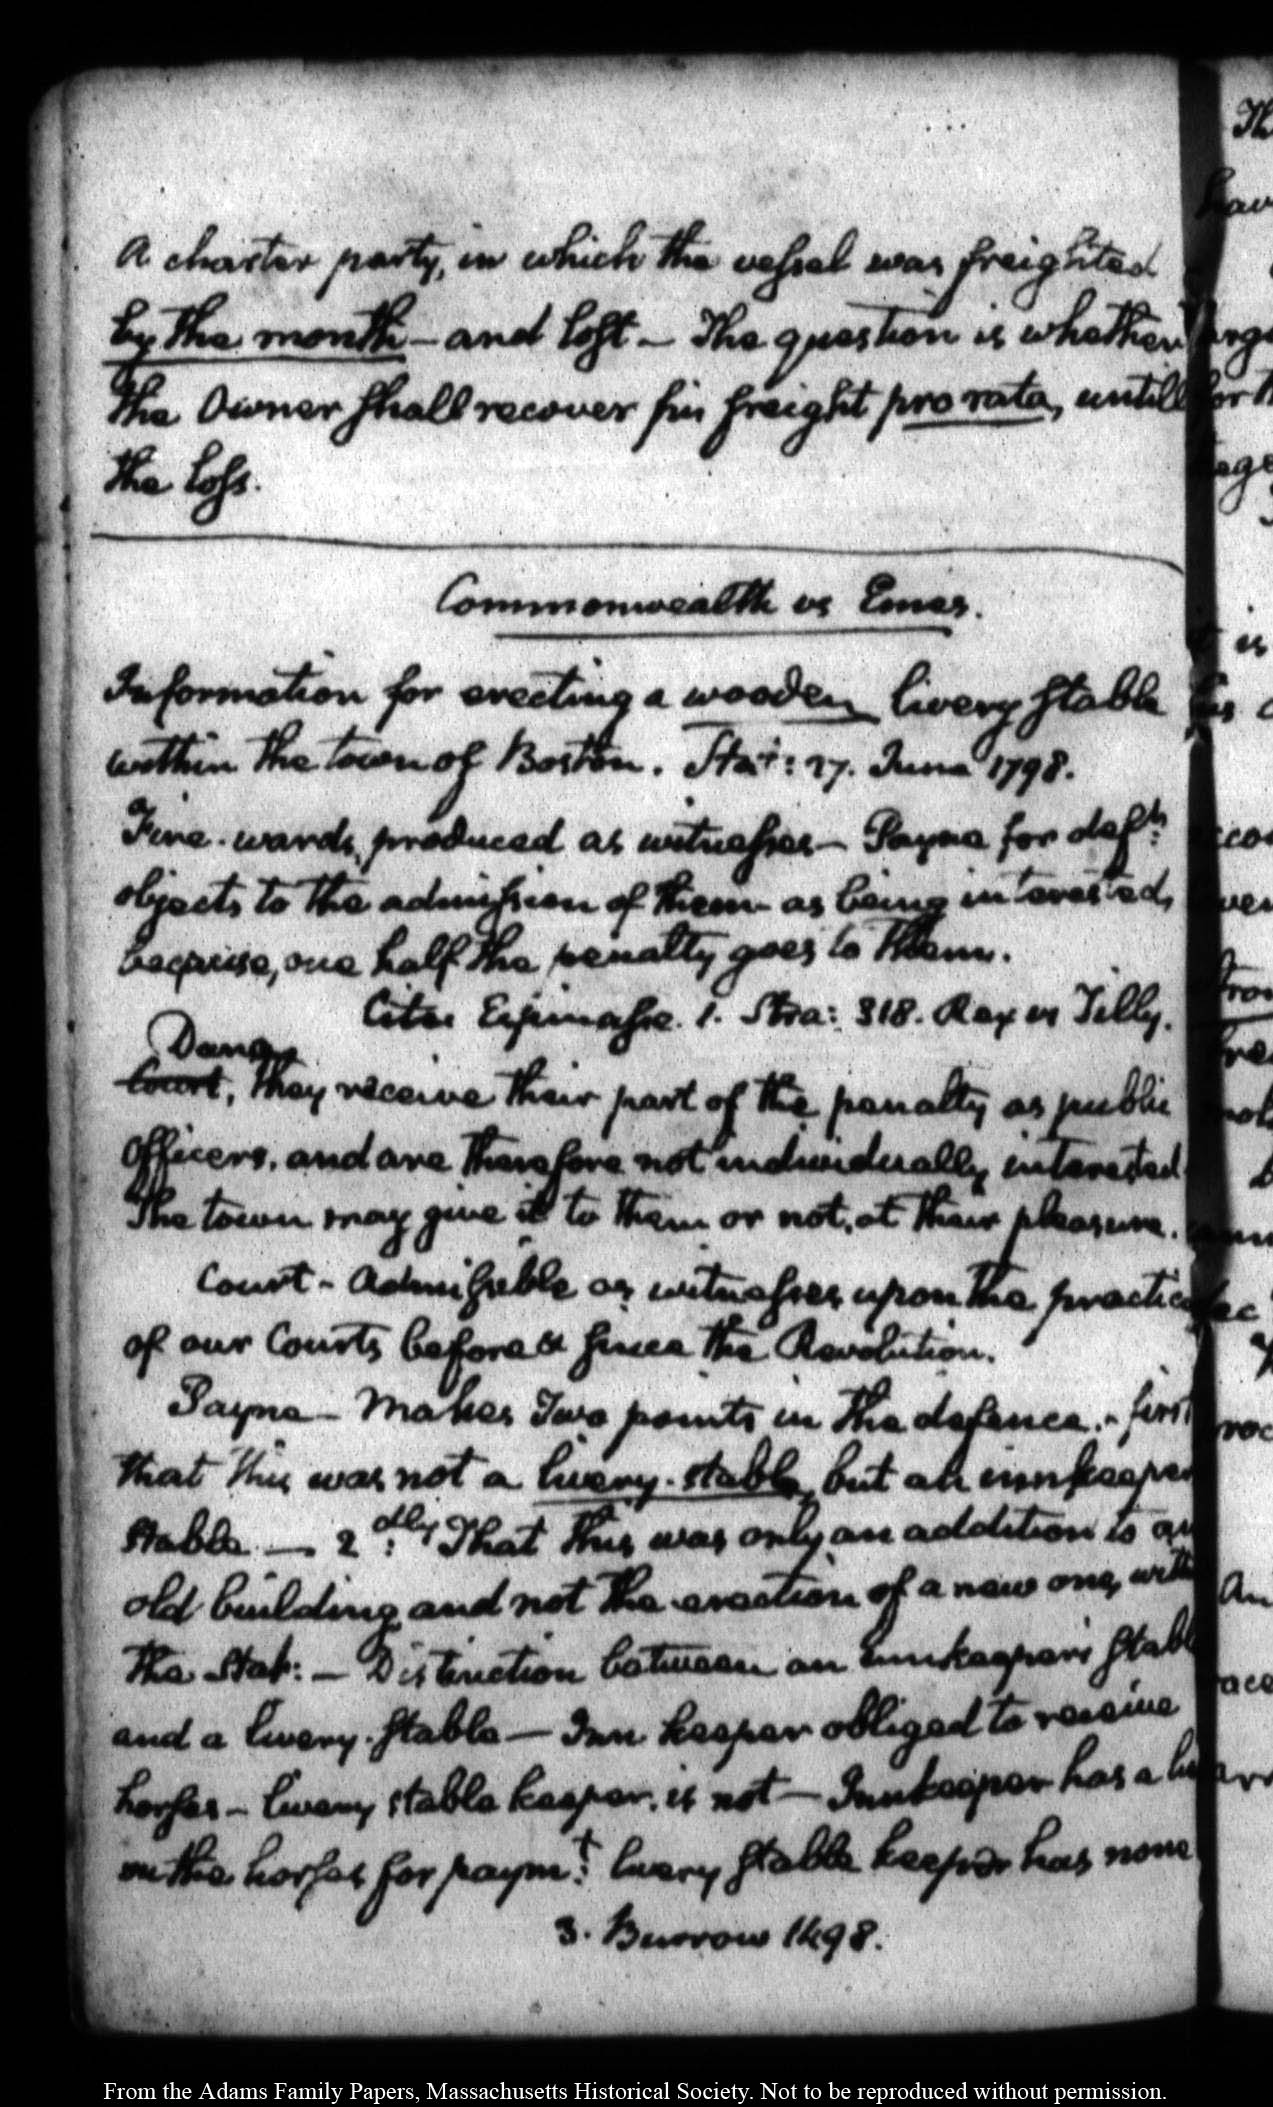 A charter party, in which the vessel was freighted
by the month – and lost – The question is whether
the Owner shall recover his freight pro rata, untill
the loss.
Commonwealth vs Emes.
Information for erecting a wooden livery stable
within the town of Boston. Stat: 27. June 1798.
Fire-wards, produced as witnesses – Payne for deft:
objects to the admission of them as being interested,
because, one half the penalty goes to them.
Cites Espinasse. 1. Stra: 318. Rex vs Tilly.
Davis
Court, they receive their part of the penalty as public
Officers, and are therefore not individually interested
The town may give it to them or not, at their pleasure.
Court – Admissible as witnesses upon the practice
of our Courts before & since the Revolution.
Payne – Makes Two points in the defence. – first
that this was not a livery-stable, but an innkeeper
stable – 2dly: That this was only an addition to an
old building and not the erection of a new one, with
the Stat: – Distinction between an Innkeeper's stabl
and a livery-stable – Inn keeper obliged to receive
horses – livery stable keeper, is not – Innkeeper has a li
on the horses for paymt: livery stable keeper has none
3. Burrow 1498.
From the Adams Family Papers, Massachusetts Historical Society. Not to be reproduced without permission.